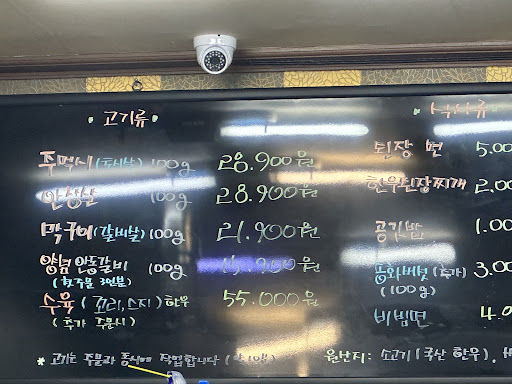 • 고기류 •
주먹시 (토시살) 100g 28.900원
안창살 100g 28.900원
막구이 (갈비살) 100g 21.900원
양념 안동갈비 100g 900원
(첫주문 3인분)
수육 (꼬리,스지) 한우 55.000원
(추가 주문시)
* 고기는 주문과 동시에 작업합니다
• 식사류
된장 면 5.00
한우된장찌개 2.00
공기밥 1.00
(추가) 3.00
(100g)
비빔면
원산지: 소고기 (국산 한우).